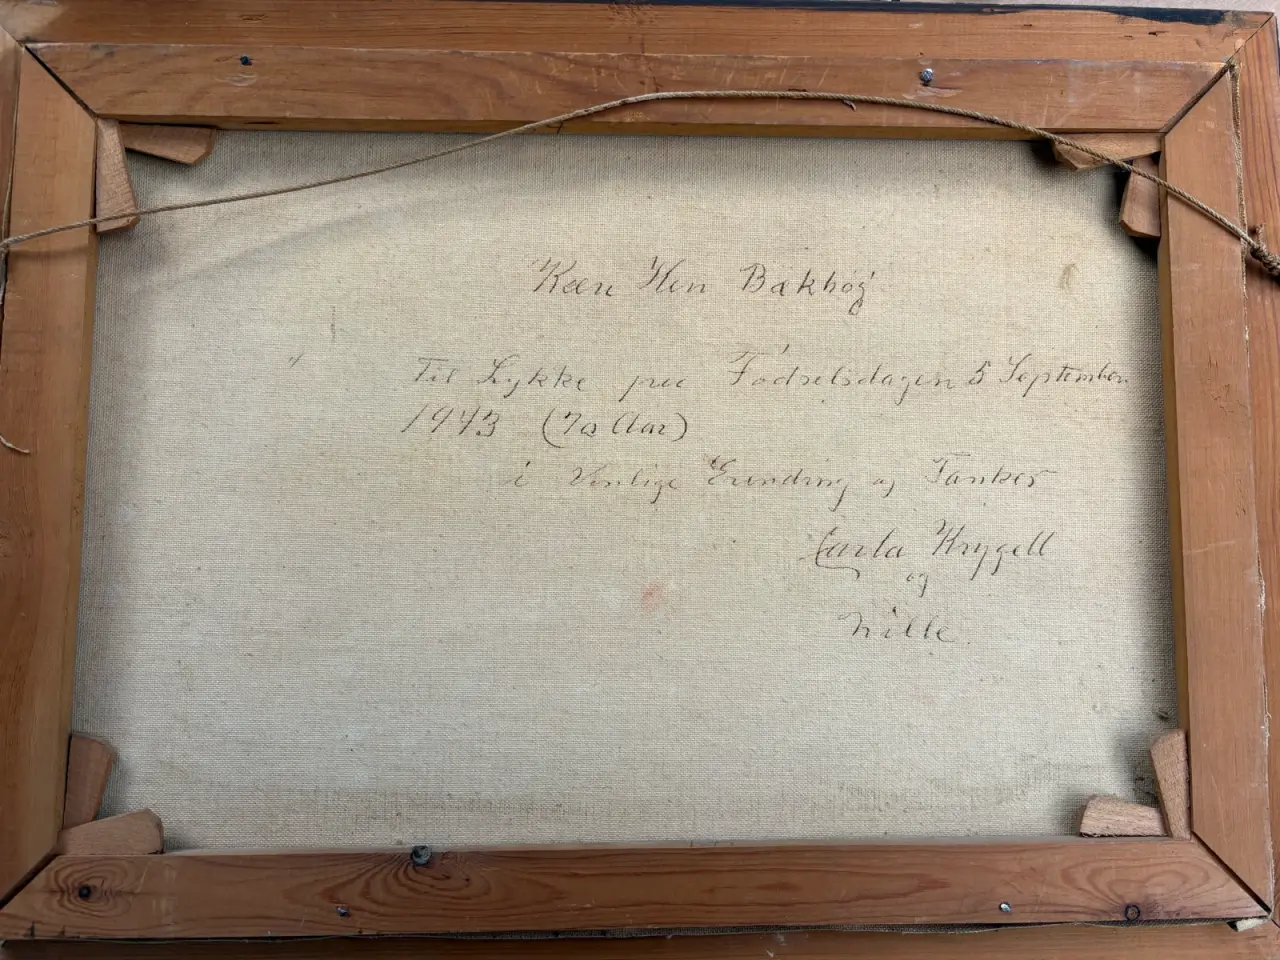 Kære Hen Bakhøj
Til Lykke paa Fødselsdagen 5 September
1943 (70 Aar)
i Venlige Erindring og Tanker
Carla Krygell
og
Wille